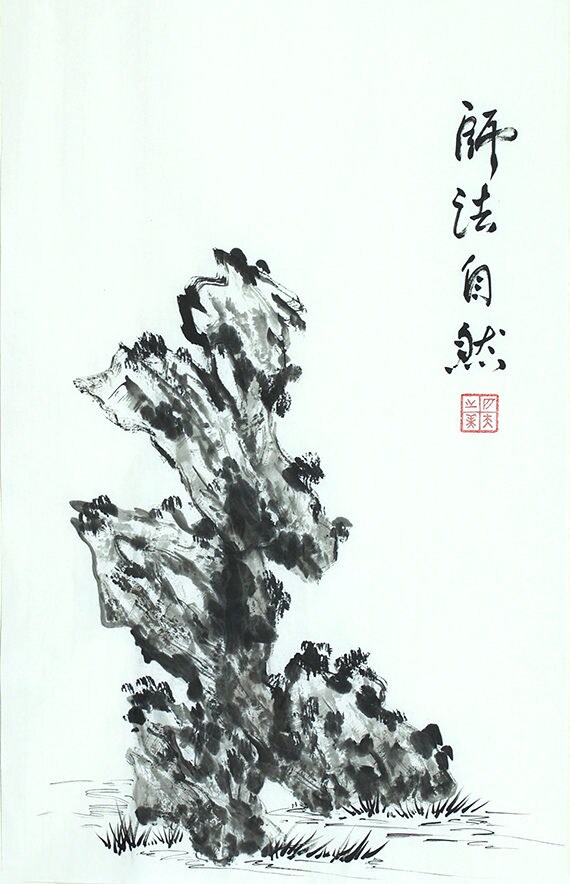 師法自然